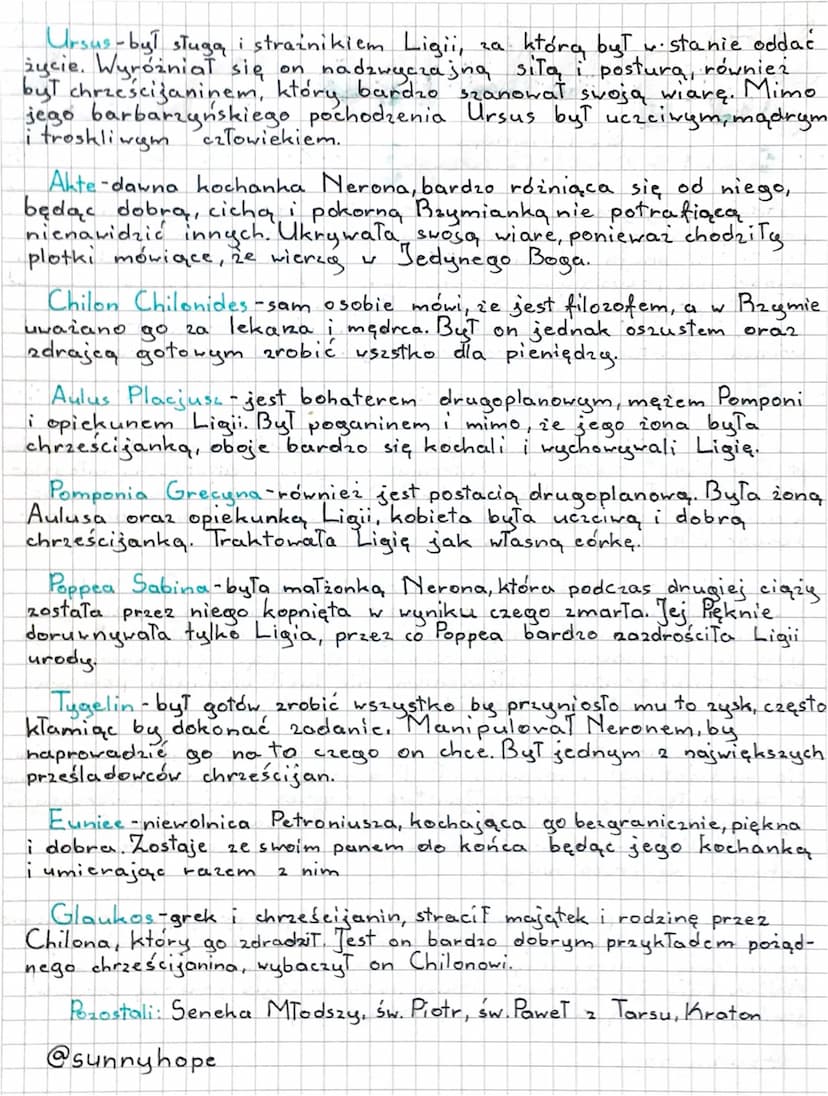 Ursus-był sługą i strażnikiem Ligii, za którą był w stanie oddać
życie. Wyróżniał się on nadzwyczajną siłą i posturą, również
był chrześcijaninem, który bardzo szanował swoją wiarę. Mimo
jego barbarzyńskiego pochodzenia Ursus był uczciwym, mądrym
i troskliwym człowiekiem.
Akte-dawna kochanka Nerona, bardzo różniąca się od niego,
będąc dobrą, cichą i pokorną Rzymianką nie potrafiącą
nienawidzić innych. Ukrywała swoją wiarę, ponieważ chodziły
plotki mówiące, że wierzą w Jedynego Boga.
Chilon Chilonides-sam o sobie mówi, że jest filozofem, a w Rzymie
uważano go za lekarza i mędrca. Był on jednak oszustem oraz
zdrajcą gotowym zrobić wszstko dla pieniędzy.
Aulus Placjusz-jest bohaterem drugoplanowym, mężem Pomponi
i opiekunem Ligii. Był poganinem i mimo, że jego żona była
chrześcijanką, oboje bardzo się kochali i wychowywali Ligię.
Pomponia Grecyna-również jest postacią drugoplanową. Była żoną
Aulusa oraz opiekunką Ligii, kobieta była uczciwą i dobrą
chrześcijanką. Traktowała Ligię jak własną córkę.
Poppea Sabina-była małżonką Nerona, która podczas drugiej ciąży
została przez niego kopnięta w wyniku czego zmarła. Jej Pięknie
dorównywała tylko Ligia, przez co Poppea bardzo zazdrościła Ligii
urody.
Tygelin-był gotów zrobić wszystko by przyniosło mu to zysk, często
kłamiąc by dokonać zadanie. Manipulował Neronem, by
naprowadzić go na to czego on chce. Był jednym z największych
prześladowców chrześcijan.
Eunice-niewolnica Petroniusza, kochająca go bezgranicznie, piękna
i dobra. Zostaje ze swoim panem do końca będąc jego kochanką
i umierając razem z nim
Glaukos-grek i chrześcijanin, stracił majątek i rodzinę przez
Chilona, który go zdradził. Jest on bardzo dobrym przykładem pożąd-
nego chrześcijanina, wybaczył on Chilonowi.
Pozostali: Seneka Młodszy, św. Piotr, św. Paweł z Tarsu, Kraton
@sunnyhope